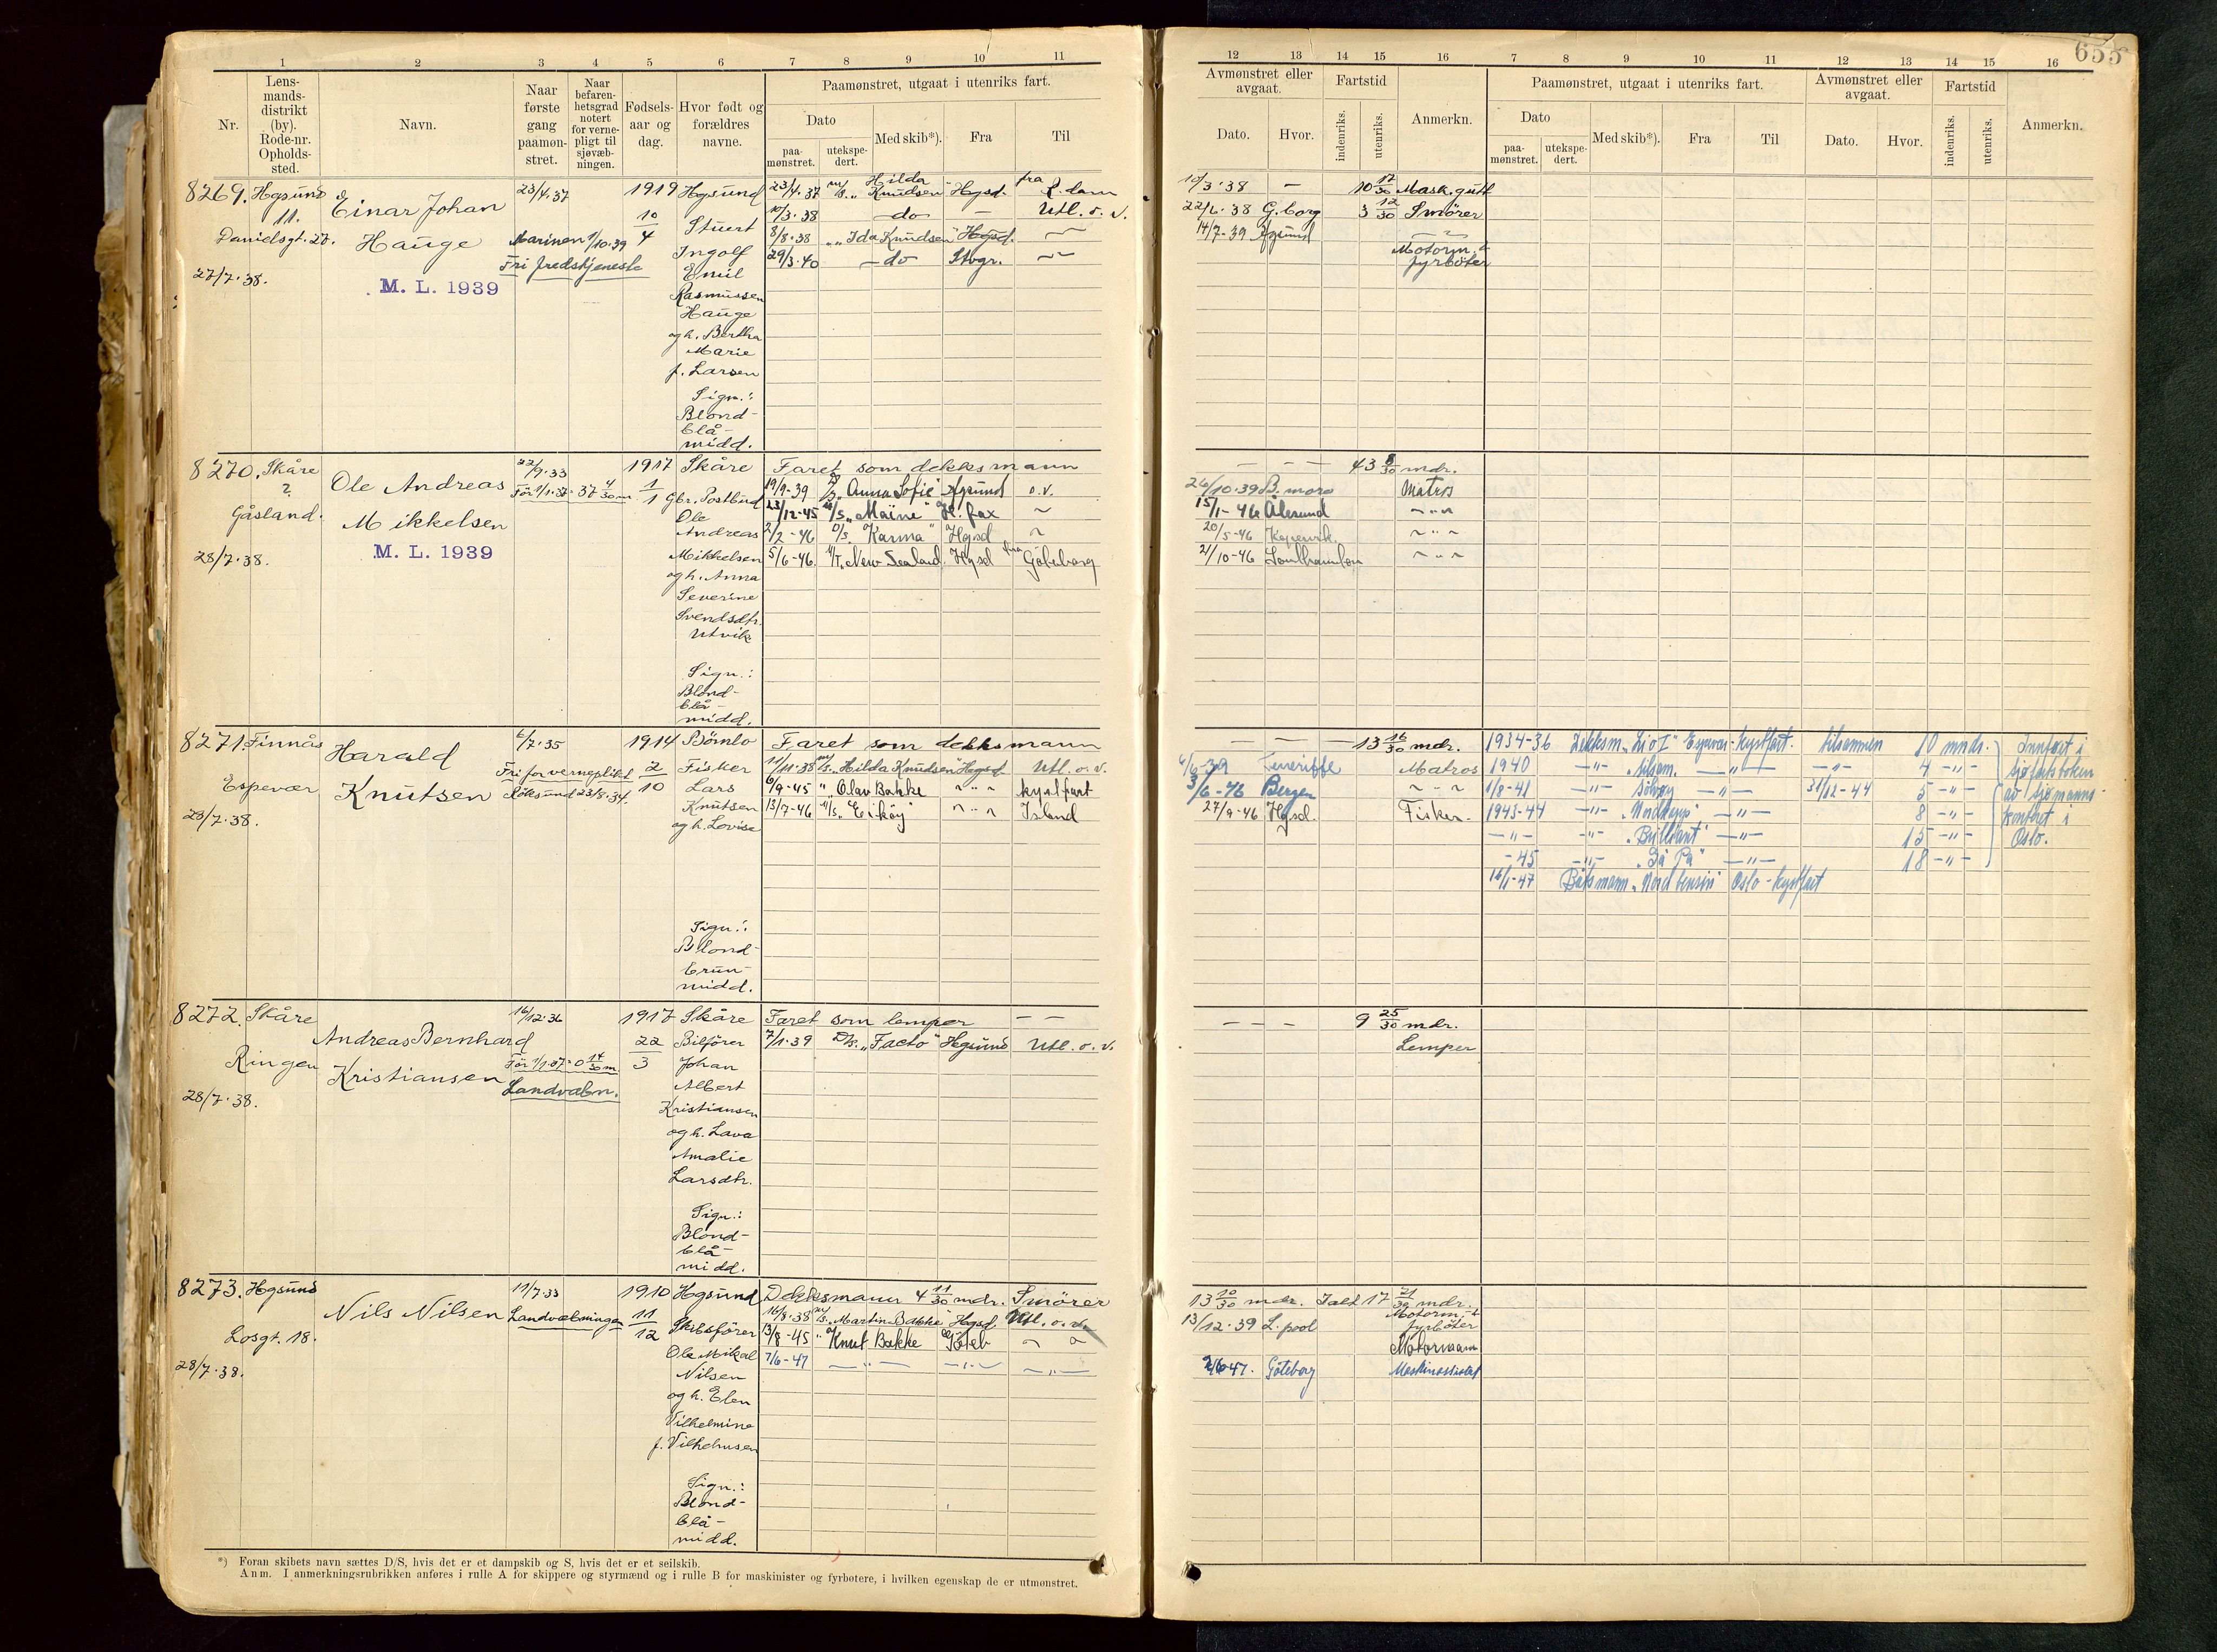 655
1 2 3 4 5 6 7 8 9 10 11
Nr.
Lens-
mands-
distrikt
(by).
Rode-nr.
Opholds-
sted.
Navn.
Naar
første
gang
paamøn-
stret.
Naar
befaren-
hetsgrad
notert
for verne-
pligt til
sjøvæb-
ningen.
Fødsels-
aar og
dag.
Hvor født og
forældres
navne.
Paamønstret, utgaat i utenriks fart.
Dato
paa-
mønstret.
utekspe-
dert.
Med skib*).
Fra
Til
12 13 14 15 16 7 8 9 10 11 12 13 14 15 16
Avmønstret eller
avgaat.
Dato.
Hvor.
Fartstid
indenriks.
utenriks.
Anmerkn.
Paamønstret, utgaat i utenriks fart.
Dato
paa-
mønstret.
utekspe-
dert.
Med skib*).
Fra
Til
Avmønstret eller
avgaat.
Dato.
Hvor.
Fartstid
indenriks.
utenriks.
Anmerkn.
8269. Hgsund
11.
Danielsgt. 27.
27/7.38.
Einar Johan
Hauge
M. L. 1939
23/4.37
Marinen 1/10.39
Fri fredstjeneste
1919
10
4
Hgsund
Stuert
Ingolf
Emil
Rasmussen
Hauge
og h. Bertha
Marie
f. Larsen
Sign.:
Blond-
blå-
midd.
23/4.37 M/S. „Hilda Knudsen" Hgsd. fra R.dam
10/3.38 — do — — Utl. o. v.
8/8.38 „ „Ida Knudsen" Hgsd. —
29/3.40 — do Stvgr. —
10/3.38 — 10 17/30 Mask. gutt
22/6.38 G.borg 3 12/30 Smörer
14/7-39 Hgsund
Motorm. &
fyrböter
8270. Skåre
2.
Gåsland.
28/7.38.
Ole Andreas
Mikkelsen
M. L. 1939
22/9.33
För 1/1.37 = 37 4/30 m
1917
1
1
Skåre
Gbr. Postbud
Ole
Andreas
Mikkelsen
og h. Anna
Severine
Svendsdtr.
Utvik
Sign.:
Blond-
blå-
midd.
Faret som dekksmann
19/9-39 D/S „Anna Sofie" Hgsund o.v.
23/12-45 M/S „Maine" H.fax
2/2-46 D/S „Karma" Hgsd
5/6-46. M/T „New Sealand. Hgsd fra Göteborg
— — — 43 8/30 mdr.
26/10.39 B. more Matros
15/1-46 Ålesund
20/5-46 Kopervik.
21/10-46
8271. Finnås
Espevær
28/7.38.
Harald
Knutsen
6/7.35
Fri for vernepliktl.
Röksund 23/8.34.
1914
2
10
Bömlo
Fisker
Lars
Knutsen
og h. Lovise
Sign.:
Blond-
brun-
midd.
Faret som dekksmann
11/11.38 M/S. „Hilda Knudsen" Hgsd Utl. o. v.
6/9-45 „ Olav Bakke kystfart
13/7-46 M/S. "Erköy" Island
— — — 13 16/30 mdr.
6/6-39 Teneriffe Matros
3/6-46 Bergen
27/9-46 Hgsd. Fisker.
1934-36 Dekksm. Espevær - kystfart. tilsammen 10 mndr.
1940 4
1/8-41 „Sölvöy 31/12-44 5
1943-44 8
"Brilliant" 15
-45 18
16/1-47 Båtsmann „Nord bensin" Oslo - kystfart
Innført i
sjøfartsboken
av sjømanns-
kontoret i
Oslo.
8272. Skåre
Ringen
28/7.38.
Andreas Bernhard
Kristiansen
16/12.36
För 1/1.37 = 0 14/30 m.
Landvæbn.
1917
22
3
Skåre
Bilfører
Johan
Albert
Kristiansen
og h. Lava
Amalie
Larsdtr.
Sign.:
Blond-
blå-
midd.
Faret som lemper — —
7/1.39 D/s. „Facto" Hgsund Utl. o. v.
— — — 9 25/30 mdr.
Lemper
8273. Hgsund
Losgt. 18.
28/7.38.
Nils Nilsen
11/7.33
Landvæbningen
1910
11
12
Hgsund
Skibsförer
Ole Mikal
Nilsen
og h. Elen
Vilhelmine
f. Vilhelmsen
Sign.:
Blond-
blå-
midd.
Dekksmann 4 11/30 mdr. Smörer
16/8.38 M/S. „Martin Bakke" Hgsd. Utl. o. v.
13/8-45 „ Knut Bakke Göteb
7/6-47
13 10/30 mdr. Ialt 17 21/30 mdr.
13/12.39 L.pool Motorm. &
fyrböter
Motormann
2/6 47. Göteborg Maskinassistent
*) Foran skibets navn sættes D/S, hvis det er et dampskib og S, hvis det er et seilskib.
Anm. I anmerkningsrubrikken anføres i rulle A for skippere og styrmænd og i rulle B for maskinister og fyrbøtere, i hvilken egenskap de er utmønstret.